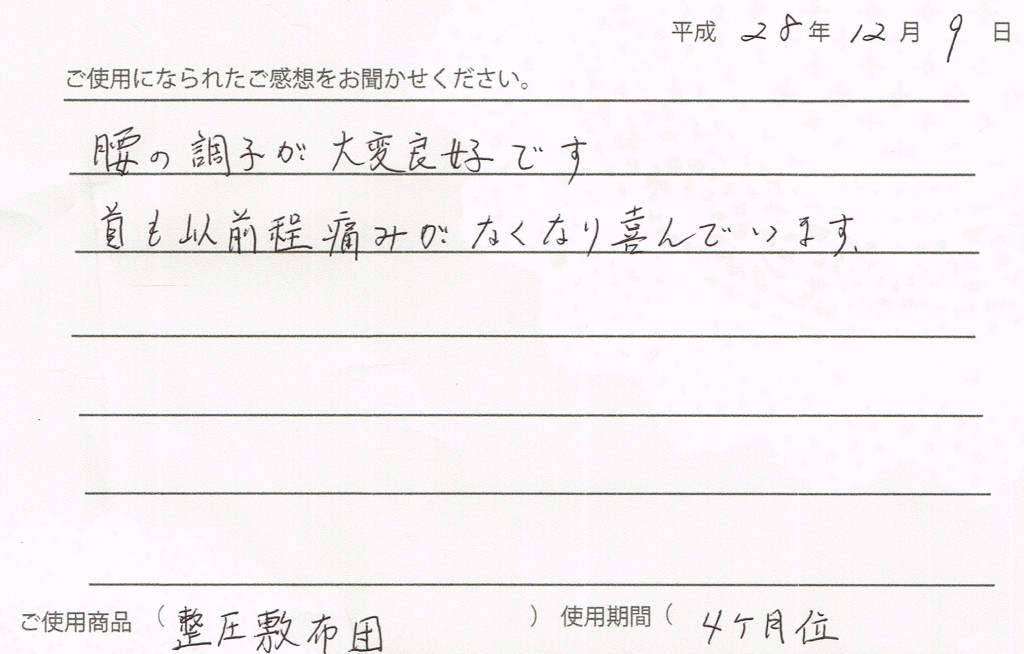 平成 28年 12月 9日
ご使用になられたご感想をお聞かせください。
腰の調子が大変良好です
首も以前程痛みがなくなり喜んでいます。
ご使用商品 ( 整圧敷布団 ) 使用期間 ( 4ケ月位